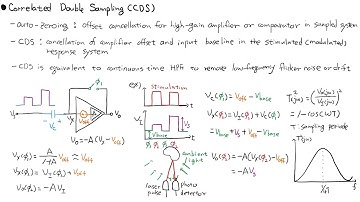 • Correlated Double Sampling (CDS)
- auto-zeroing : offset cancellation for high-gain amplifier or comparator in sampled system
- CDS : cancellation of amplifier offset and input baseline in the stimulated (modulated) response system
- CDS is equivalent to continuous time HPF to remove low-frequency flicker noise or drift
Φ₁
V_I
V_x
V_off
-A
V_o
V_o = -A(V_x - V_off)
V_x(Φ₁) = A/(1+A) V_off ≈ V_off
V_x(Φ₂) = V_I(Φ₂) + V_off
V_o(Φ₂) = -A V_I
ex)
stimulation
V_I
V_base
V_s
Φ₁ Φ₂ Φ₁ Φ₂
ambient light
laser pulse
photo detector
V_c(Φ₁) = V_off - V_base
V_x(Φ₂) = V_I(Φ₂) + V_c(Φ₁)
= V_base + V_s + V_off - V_base
V_o(Φ₂) = -A(V_x(Φ₂) - V_off)
= -A V_s
= 1 - cos(ωT)
T : sampling periode
T(jω)
f